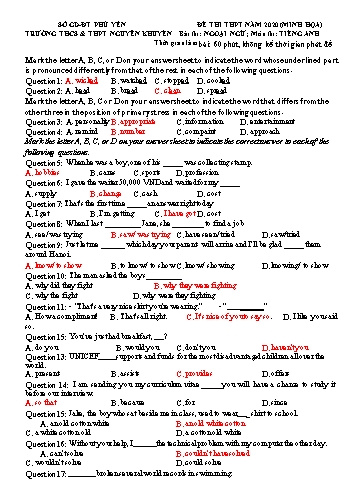 SỞ GD-ĐT PHÚ YÊN ĐỀ THI THPT NĂM 2020 (MINH HỌA)
TRƯỜNG THCS & THPT NGUYỄN KHUYẾN Bài thi: NGOẠI NGỮ; Môn thi: TIẾNG ANH
Thời gian làm bài: 60 phút, không kể thời gian phát đề
Mark the letter A, B, C, or D on your answer sheet to indicate the word whose underlined part
is pronounced differently from that of the rest in each of the following questions.
Question 1: A. wicked B. watched C. stopped D. cooked
Question 2: A. head B. bread C. clean D. spread
Mark the letter A, B, C, or D on your answer sheet to indicate the word that differs from the
other three in the position of primary stress in each of the following questions.
Question 3: A. personality B. appropriate C. information D. entertainment
Question 4: A. remind B. number C. complaint D. approach
Mark the letter A, B, C, or D on your answer sheet to indicate the correct answer to each of the
following questions.
Question 5: When he was a boy, one of his ____ was collecting stamp.
A. hobbies B. game C. sport D. profession
Question 6: I gave the waiter 50,000 VND and waited for my ____
A. supply B. change C. cash D. cost
Question 7: That's the first time ____ an answer right today
A. I get B. I'm getting C. I have got D. cost
Question 8: When I last ____ Jane, she ____ to find a job
A. see/was trying B. saw/ was trying C. have seen/tried D. saw/tried
Question 9: Just let me ____ which day your parent will arrive and I'll be glad ____ them
around Hanoi.
A. know/ to show B. to know/ to show C. know/ showing D. knowing/ to show
Question 10: The man asked the boys ____
A. why did they fight B. why they were fighting
C. why the fight D. why were they fighting
Question 11: - "That's a very nice skirt you're wearing." - "____"
A. How a compliment! B. That's all right. C. It's nice of you to say so. D. I like you said
so.
Question 15: You've just had breakfast, __?
A. do you B. would you C. don't you D. haven't you
Question 13: UNICEF____ supports and funds for the most disadvantaged children all over the
world.
A. present B. assists C. provides D. offers
Question 14: I am sending you my curriculum vitae ____ you will have a chance to study it
before our interview.
A. so that B. because C. for D. since
Question 15: Jake, the boy who sat beside me in class, used to wear____ shirt to school.
A. an old cotton white B. an old white cotton
C. a white cotton old D. a cotton old white
Question 16: Without your help, I____ the technical problem with my computer the other day.
A. can't solve B. couldn't have solved
C. wouldn't solve D. could solve
Question 17: ____ broken several world records in swimming.